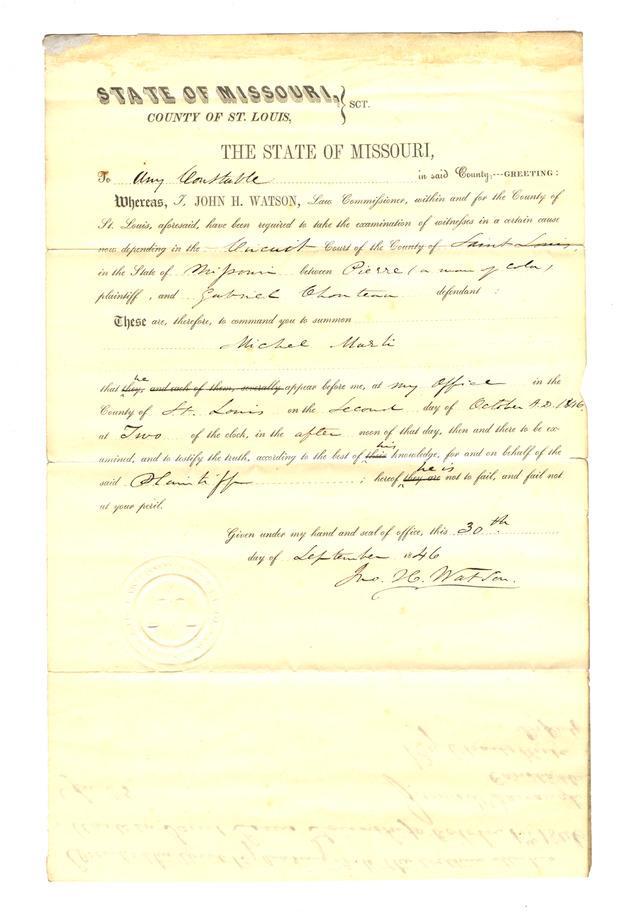 STATE OF MISSOURI, } SCT.
COUNTY OF ST. LOUIS,
THE STATE OF MISSOURI,
To Any Constable in said County,---GREETING:
Whereas, I, JOHN H. WATSON, Law Commissioner, within and for the County of
St. Louis, aforesaid, have been required to take the examination of witnesses in a certain cause
now depending in the Circuit Court of the County of Saint Louis,
in the State of Missouri between Pierre (a man of color)
plaintiff, and Gabriel Chouteau defendant:
These are, therefore, to command you to summon
Michel Marli
he
that they, and each of them, severally appear before me, at my office in the
County of St. Louis on the Second day of October A.D. 1846,
at Two of the clock, in the after noon of that day, then and there to be ex-
his
amined, and to testify the truth, according to the best of their knowledge, for and on behalf of the
he is
said Plaintiff ; hereof they are not to fail, and fail not
at your peril.
Given under my hand and seal of office, this 30th
day of September 1846
Jno. H. Watson.